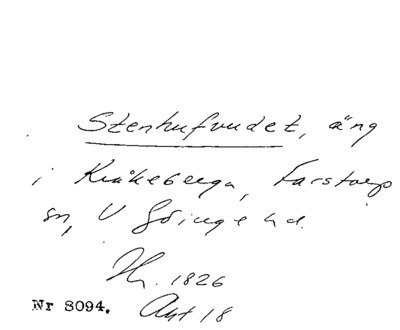 Stenhufvudet, äng
i Kråkeberga, Farstorp
sn, V Göinge hd.
Hr. 1826
Nr 8094. Akt 18